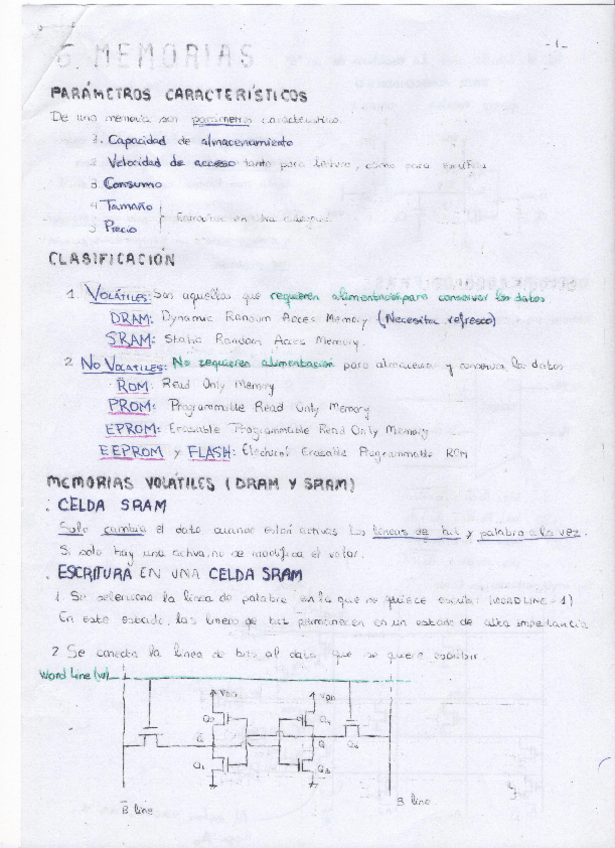 6. MEMORIAS
-1-
PARÁMETROS CARACTERÍSTICOS
De una memoria son parámetros característicos
1. Capacidad de almacenamiento
2. Velocidad de acceso tanto para lectura, como para escritura
3 Consumo
4 Tamaño
5 Precio
CLASIFICACIÓN
1 VOLÁTILES: Son aquellas que requieren alimentación para conservar los datos
DRAM: Dynamic Random Acces Memory (Necesita refresco)
SRAM: Static Random Acces Memory.
2 NO VOLATILES: No requieren alimentación para almacenar y conservar los datos
ROM: Read Only Memory
PROM: Programmable Read Only Memory
EPROM: Erasable Programmable Read Only Memory
EEPROM y FLASH: Electrical Erasable Programmable ROM
MEMORIAS VOLÁTILES (DRAM Y SRAM)
. CELDA SRAM
Solo cambia el dato cuando están activas las líneas de bit y palabra a la vez.
Si solo hay una activa, no se modifica el valor.
. ESCRITURA EN UNA CELDA SRAM
1 Se selecciona la línea de palabra en la que se quiere escribir (WORDLINE=1)
En este estado, las líneas de bit permanecen en un estado de alta impedancia
2 Se conecta la línea de bits al dato que se quiere escribir.
Word Line (W)
VDD VDD
B line
B line